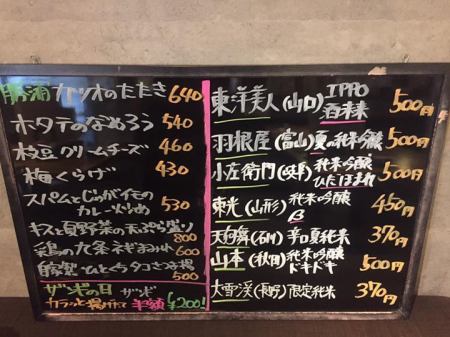 カツオのたたき 640
ホタテのなめろう 540
枝豆クリームチーズ 460
梅くらげ 430
スパムとじゃがイモの
カレー炒め 530
キスと夏野菜の天ぷら盛り
800
鶏の九条ネギ
600
ひとくちタコさつま揚
500
ザンギの日 ザンギ
カラッと揚げたて 半額 ¥200!
東洋美人 (山口) IPPO
500円
羽根屋 (富山) 夏の純米吟醸 500円
小左衛門 (岐阜) 純米吟醸
ひだほまれ 500円
東光 (山形) 純米吟醸
β 450円
天狗舞 (石川) 辛口夏純米 370円
山本 (秋田) 純米吟醸
ドキドキ 500円
大雪渓 (長野) 限定純米 370円